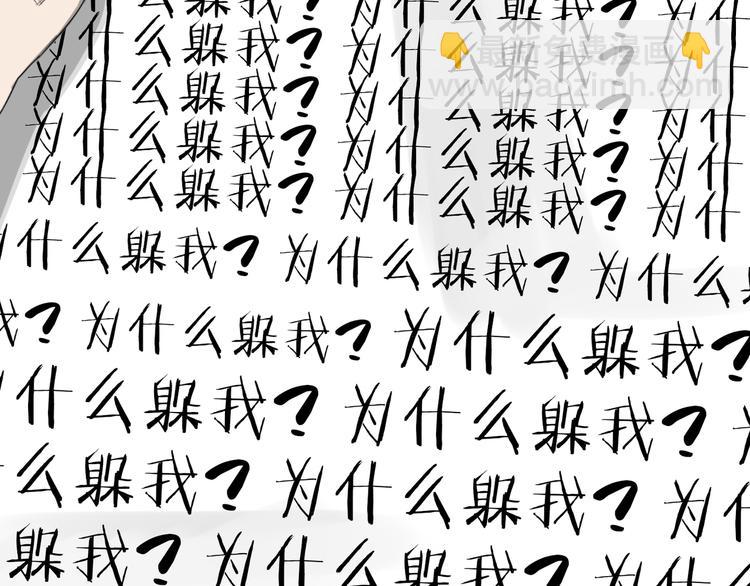 什么躲我? 为什么躲我?
为什么躲我? 为什么躲我? 为什
最新免费漫画
为什么躲我? 为什么躲我? 为什
www.baozimh.com
为什么躲我? 为什么躲我? 为什
为什么躲我? 为什么躲我? 为什
为什么躲我? 为什么躲我? 为什
什么躲我? 为什么躲我? 为什么
我? 为什么躲我? 为什么躲我?
什么躲我? 为什么躲我?
么躲我? 为什么躲我? 为什
躲我? 为什么躲我? 为什